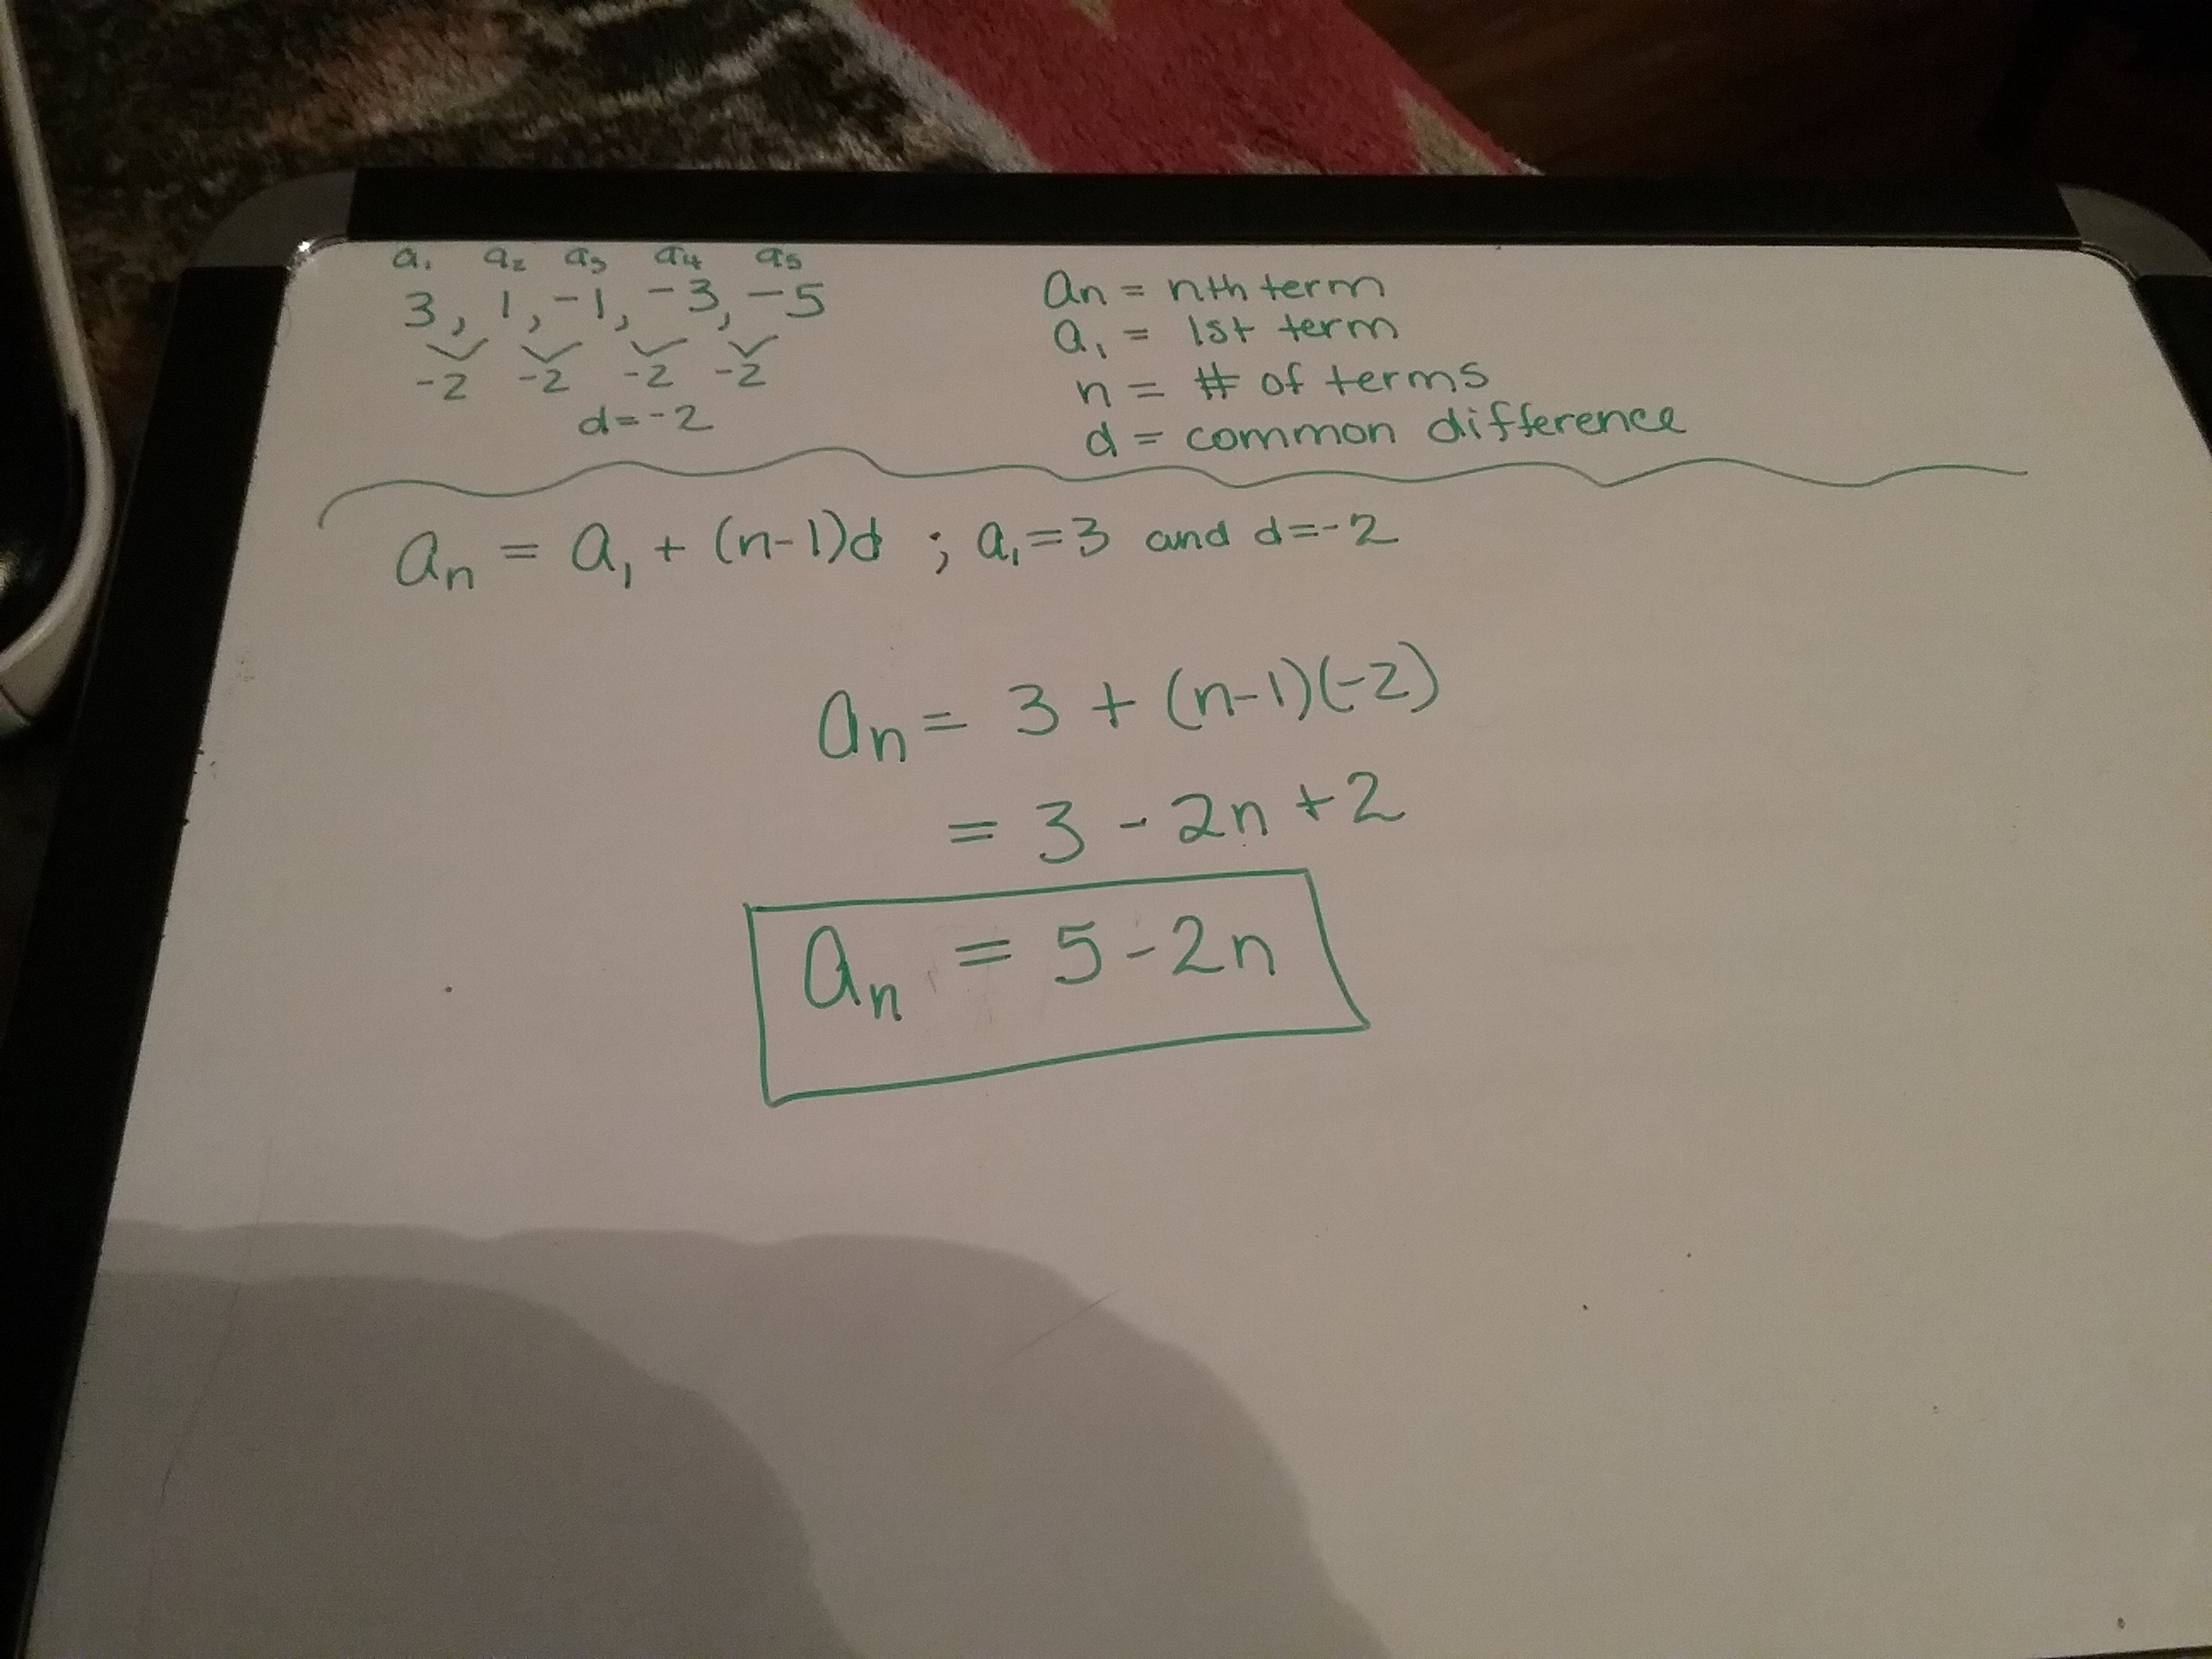 a₁ a₂ a₃ a₄ a₅
3, 1, -1, -3, -5
-2 -2 -2 -2
d=-2
an = nth term
a₁ = 1st term
n = # of terms
d = common difference
an = a₁ + (n-1)d ; a₁=3 and d=-2
an = 3 + (n-1)(-2)
= 3 - 2n +2
an = 5-2n